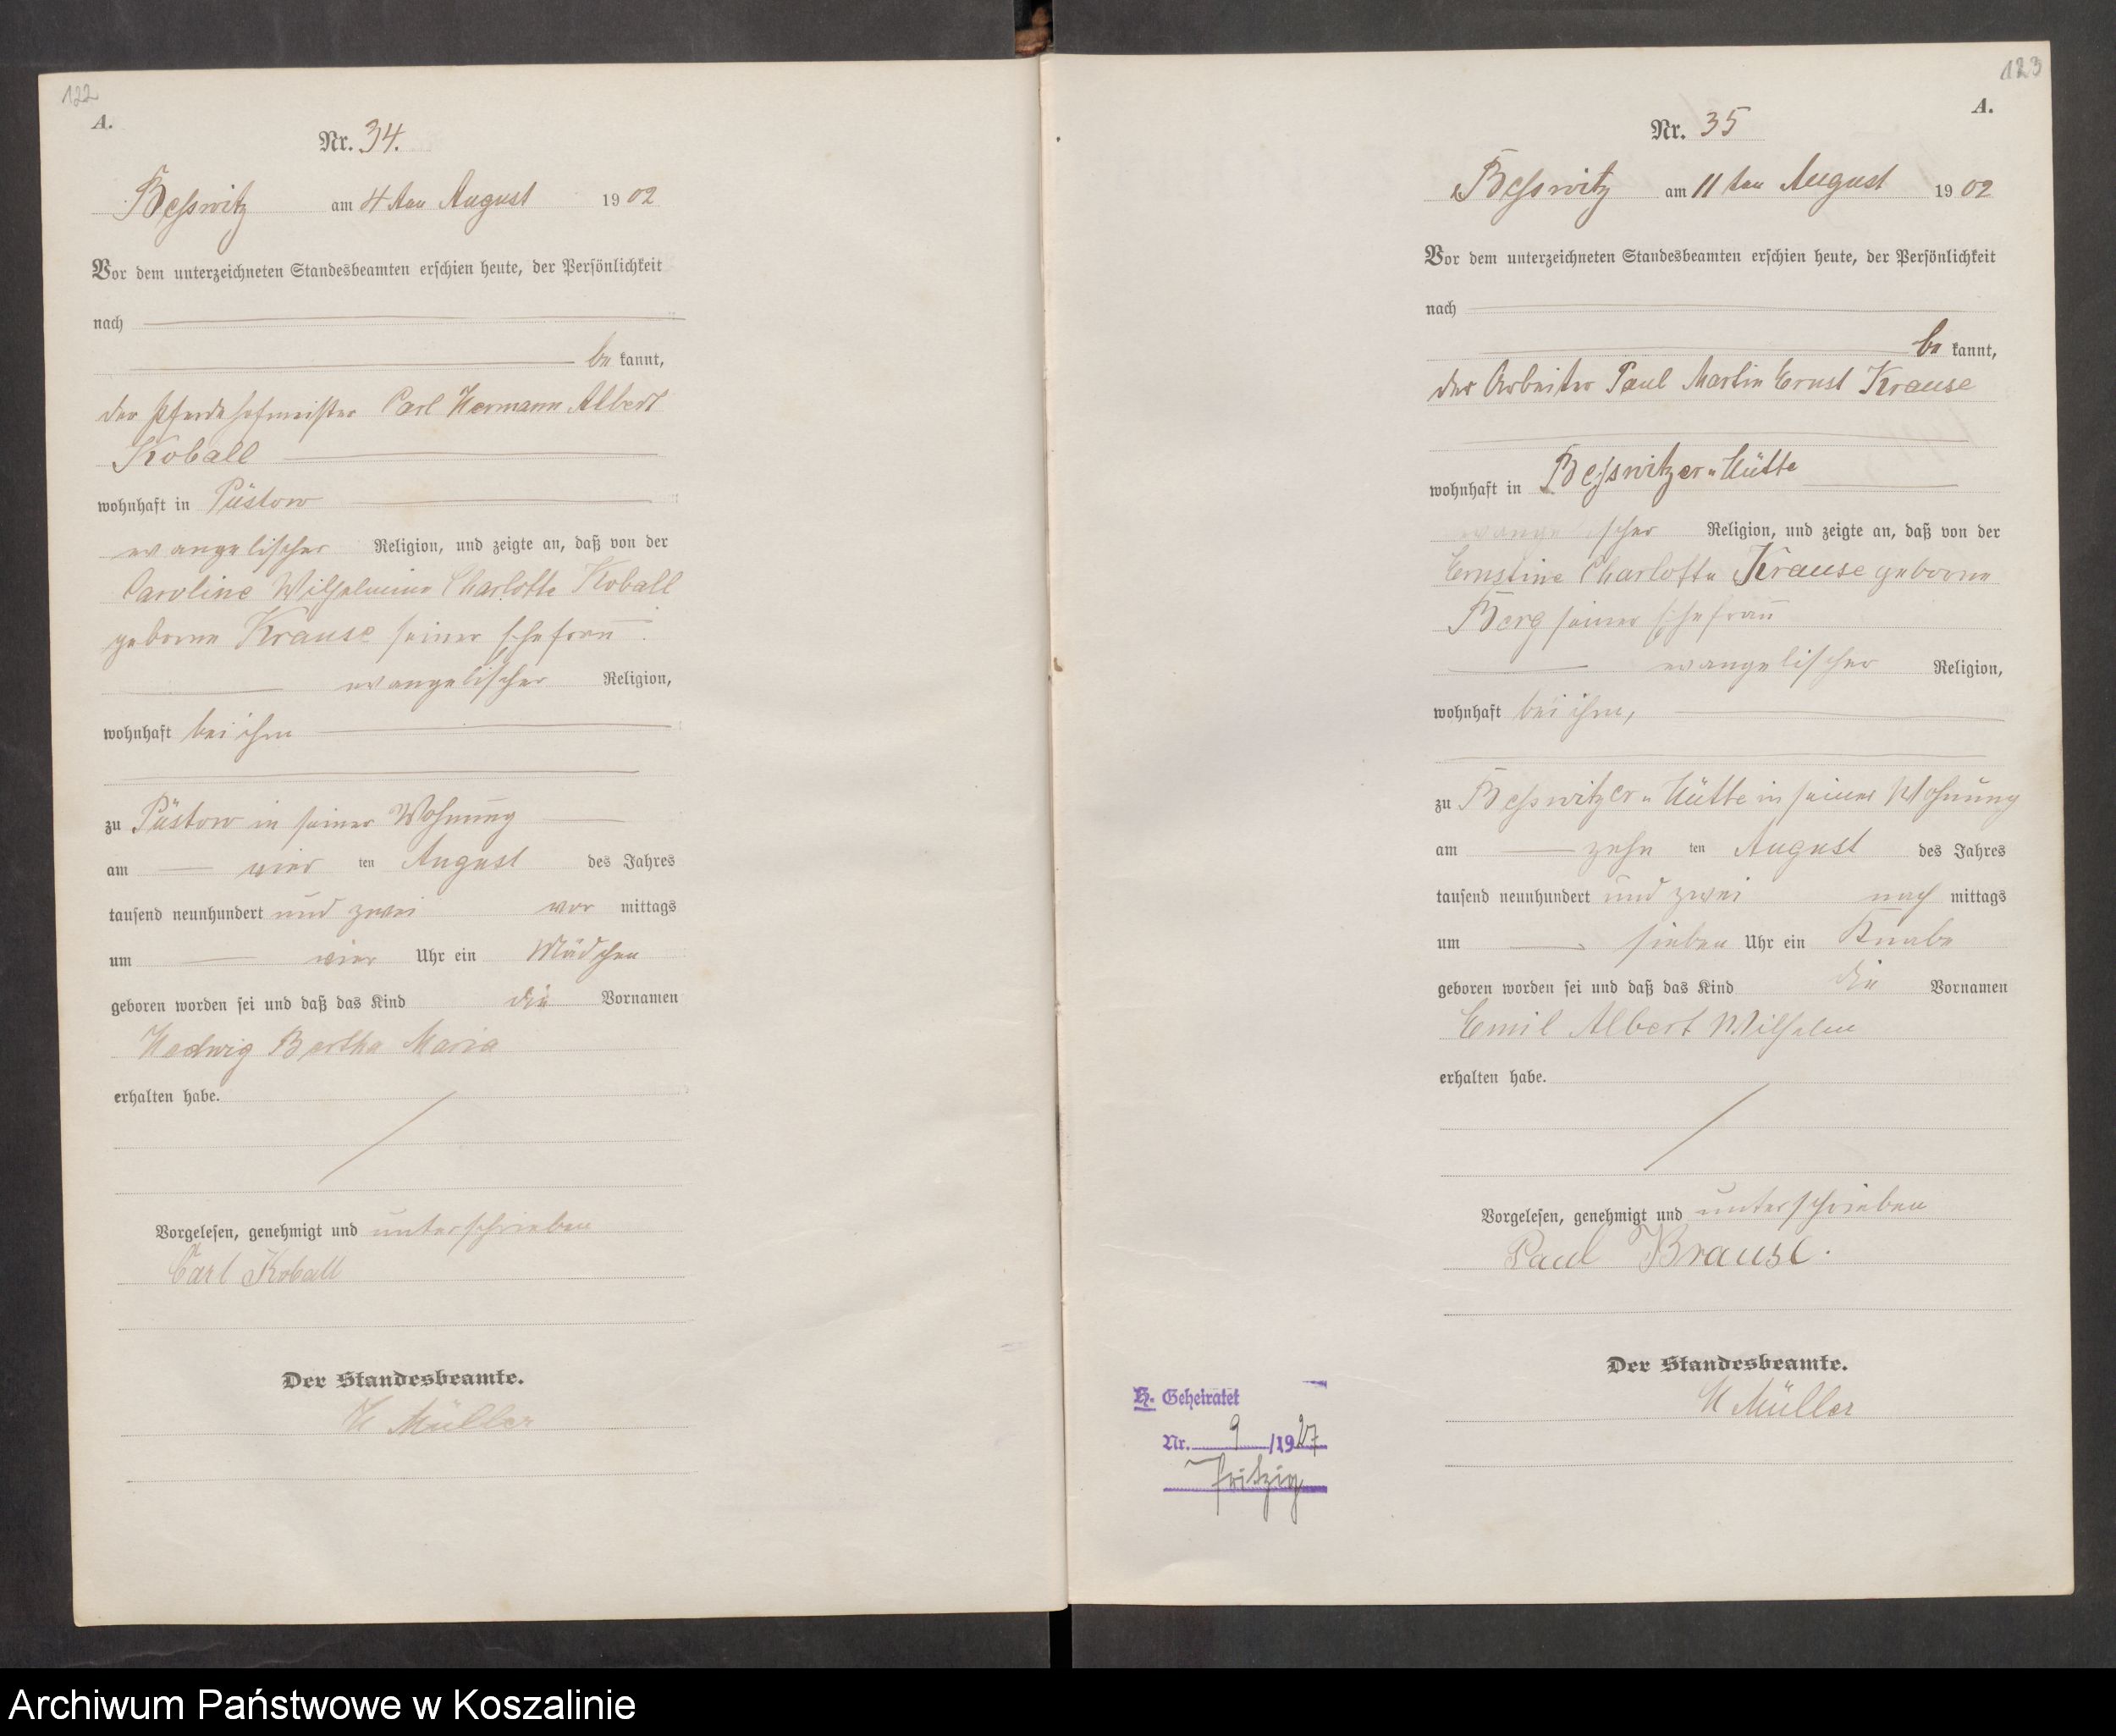 122
A.
Nr. 34.
Beßwitz am 4ten August 1902
Vor dem unterzeichneten Standesbeamten erschien heute, der Persönlichkeit
nach
be kannt,
der Pferdehofmeister Carl Hermann Albert
Koball
wohnhaft in Püstow
evangelischer Religion, und zeigte an, daß von der
Caroline Wilhelmine Charlotte Koball
geborne Krause seiner Ehefrau
evangelischer Religion,
wohnhaft bei ihm
zu Püstow in seiner Wohnung
am vier ten August des Jahres
tausend neunhundert und zwei vor mittags
um vier Uhr ein Mädchen
geboren worden sei und daß das Kind die Vornamen
Hedwig Bertha Maria
erhalten habe.
Vorgelesen, genehmigt und unterschrieben
Carl Koball
Der Standesbeamte.
H Müller
123
A.
Nr. 35
Beßwitz am 11ten August 1902
Vor dem unterzeichneten Standesbeamten erschien heute, der Persönlichkeit
nach
be kannt,
der Arbeiter Paul Martin Ernst Krause
wohnhaft in Beßwitzer-Hütte
evangelischer Religion, und zeigte an, daß von der
Ernstine Charlotte Krause geborne
Berg seiner Ehefrau
evangelischer Religion,
wohnhaft bei ihm,
zu Beßwitzer-Hütte in seiner Wohnung
am zehn ten August des Jahres
tausend neunhundert und zwei nach mittags
um sieben Uhr ein Knabe
geboren worden sei und daß das Kind die Vornamen
Emil Albert Wilhelm
erhalten habe.
Vorgelesen, genehmigt und unterschrieben
Paul Krause.
Der Standesbeamte.
H Müller
H. Geheiratet
Nr. 9 /1927
Fritzig
Archiwum Państwowe w Koszalinie